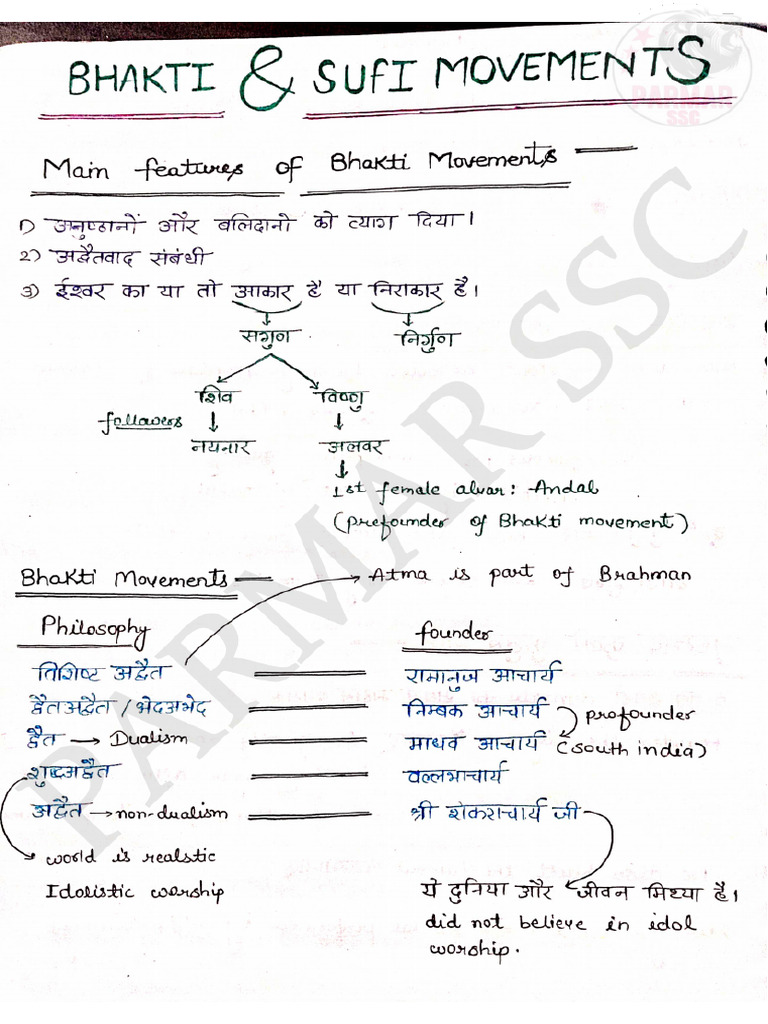 BHAKTI & SUFI MOVEMENTS
PARMAR
SSC
Main features of Bhakti Movements —
1) अनुष्ठानों और बलिदानो को त्याग दिया।
2) अद्वैतवाद संबंधी
3) ईश्वर का या तो आकार है या निराकार है।
सगुण निर्गुण
शिव विष्णु
followers
नयनार अलवर
1st female alvar: Andal
(prefounder of Bhakti movement)
Bhakti Movements — → Atma is part of Brahman
Philosophy founder
विशिष्ट अद्वैत — रामानुज आचार्य
द्वैतअद्वैत / भेदअभेद — निम्बक आचार्य profounder
द्वैत → Dualism — माधव आचार्य (south india)
शुध्दअद्वैत — वल्लभाचार्य
अद्वैत → non-dualism — श्री शंकराचार्य जी
world is realstic
Idolistic worship
ये दुनिया और जीवन मिथ्या है।
did not believe in idol
worship.
PARMAR SSC